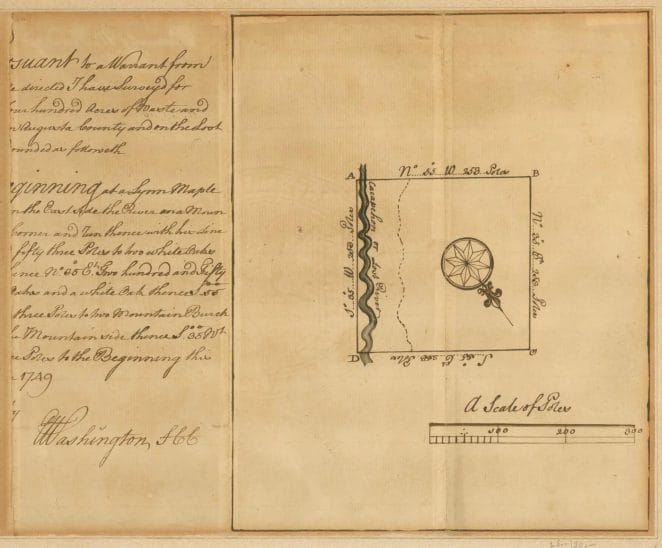 suant to a Warrant from
e directed I have Survey'd for
our hundred Acres of Waste and
n Augusta County and on the Lost
ounded as followeth
ginning at a Lynn Maple
n the East side the River on a Moun
Corner and Run thence with his Line
fifty three Poles to two white Oaks
ence No 35 Et Two hundred and Fifty
Oaks and a white Oak thence S 55
three Poles to two Mountain Burch
e Mountain side thence So 35 Wt
ee Poles to the Beginning this
1749
Washington, SCC
A
No 55 W 253 Poles
B
S 35 W 253 Poles
Cacapehon or Lost River
No 35 Et 253 Poles
D
S 55 E 253 Poles
C
A Scale of Poles
100 200 300